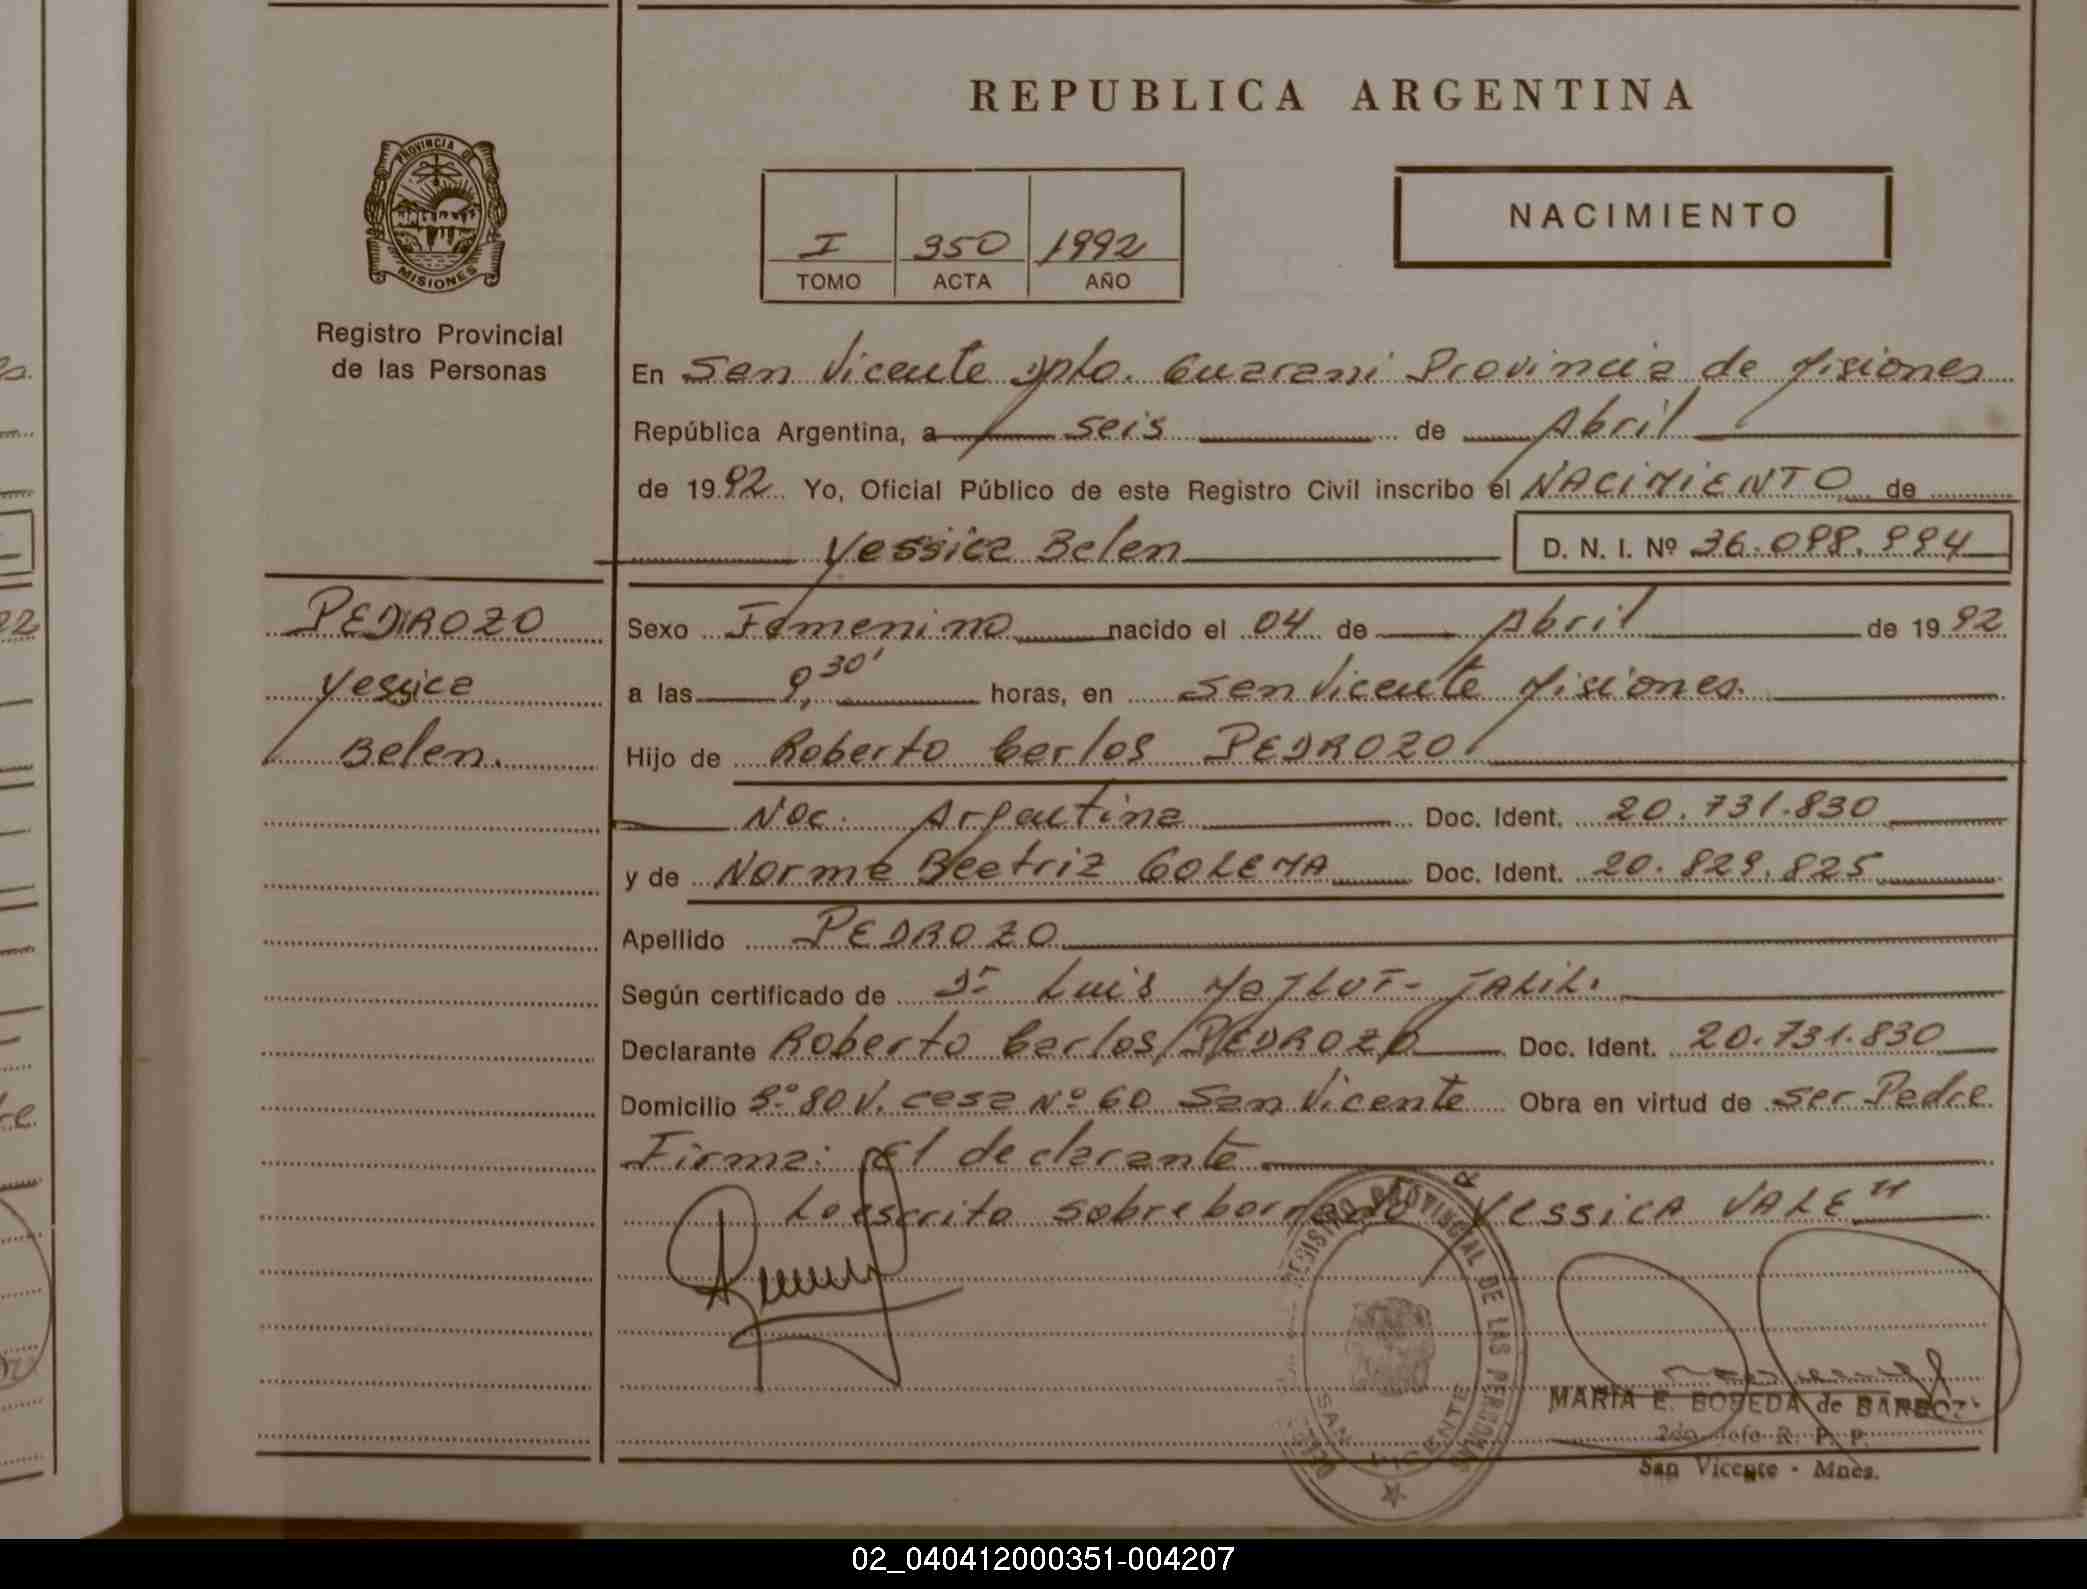 REPUBLICA ARGENTINA
PROVINCIA DE MISIONES
Registro Provincial
de las Personas
I 350 1992
TOMO ACTA AÑO
NACIMIENTO
En San Vicente Dpto. Guarani Provincia de Misiones
República Argentina, a seis de Abril
de 1992 Yo, Oficial Público de este Registro Civil inscribo el NACIMIENTO de
Yessica Belen D. N. I. Nº
PEDROZO
Yessica
Belen.
Sexo Femenino nacido el 04 de Abril de 1992
a las 9,30' horas, en San Vicente Misiones.
Hijo de Roberto Carlos PEDROZO
Nac. Argentina Doc. Ident. 20.731.830
y de Norma Beatriz GOLEMA Doc. Ident. 20.829.825
Apellido PEDROZO
Según certificado de Dr Luis JALIL.
Declarante Roberto Carlos PEDROZO Doc. Ident. 20.731.830
Domicilio Bº 80 V. casa Nº 60 San Vicente Obra en virtud de ser Padre
Firma: El declarante
Lo escrito sobre borrado Yessica VALE
REGISTRO PROVINCIAL DE LAS PERSONAS
SAN VICENTE
MARIA E. BOBEDA de
R. P. P.
San Vicente - Mnes.
02_040412000351-004207